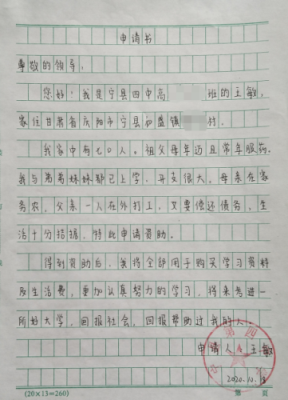 申请书
尊敬的领导:
您好,我是宁县四中高 班的王敏,
家住甘肃省庆阳市宁县和盛镇 村,
我家中有七口人。祖父母年迈且常年服药,
我与弟弟妹妹都已上学,开支很大。母亲在家
务农,父亲一人在外打工,又要偿还债务,生
活十分拮据,特此申请资助。
得到资助后,我将全部用于购买学习资料
和生活费,更加认真努力的学习,将来考进一
所好大学,回报社会,回报帮助过我的
申请人:王敏
2020.10.
(20×13=260)
第 页